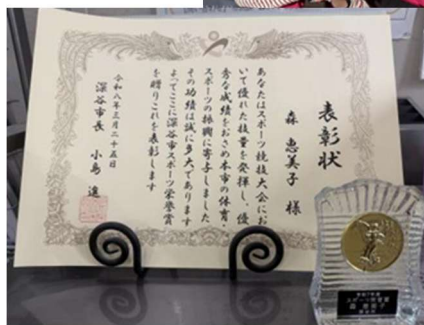 表彰状
森 恵美子 様
あなたはスポーツ競技大会にお
いて優れた技量を発揮し、優
秀な成績をおさめ本市の体育・
スポーツの振興に寄与しました
その功績は誠に多大であります
よってここに深谷市スポーツ栄誉賞
を贈りこれを表彰します
令和八年三月二十五日
深谷市長 小島 進